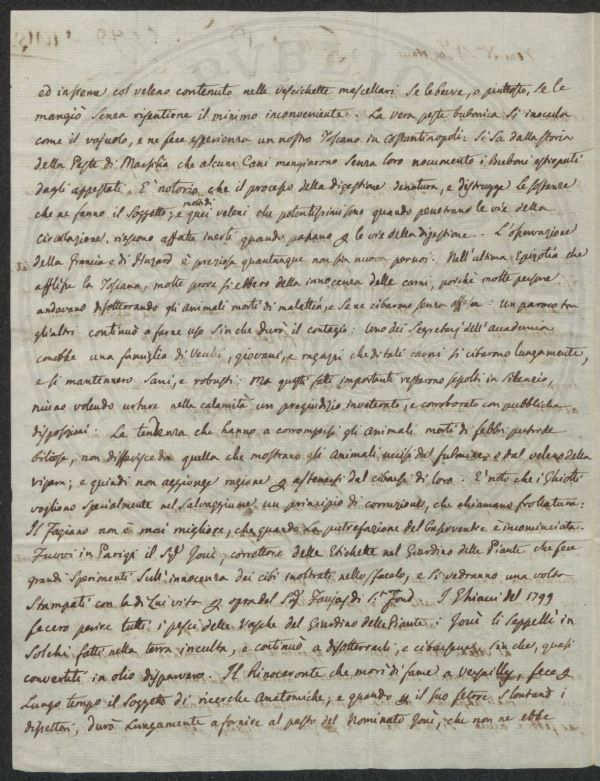 ed insieme col veleno contenuto nelle vescichette mascellari se lo bevve, o piuttosto, se le
mangiò senza risentirne il minimo inconveniente. La vera peste bubonica si inocula
come il vajuolo, e ne fece esperienza un nostro Toscano in Costantinopoli: Si sà dalla storia
della Peste di Marsilia che alcuni Cani mangiarono senza loro nocumento i Buboni estirpati
dagli appestati. E' notorio che il processo della digestione denatura, e distrugge le sostanze
che ne fanno il soggetto; e quei veleni che potentissimi sono quando penetrano le vie della
molti di
circolazione, riescono affatto inerti quando passano p le vie della digestione. L'osservazione
della Francia e di Huzard è preziosa quantunque non sia nuova per noi. Nell'ultima Epizotia che
afflisse la Toscana, molte prove si ebbero della innocenza delle carni, poichè molte persone
andavano disotterrando gli animali morti di malattia, e se ne cibarono senza offesa: Un paroco tra
gli altri continuò a farne uso sin che durò il contagio: Uno dei Segretarj dell'accademia
conobbe una famiglia di Vecchi, giovani, e ragazzi che di tali carni si cibarono lungamente,
e si mantennero sani, e robusti: Ma questi fatti importanti restarono sepolti in silenzio,
niuno volendo urtare nella calamità un pregiudizio inveterato, e corroborato con pubbliche
disposizioni. La tendenza che hanno a corrompersi gli animali morti di febbri putride
biliose, non differisce da quella che mostrano gli animali uccisi da fulmine e dal veleno della
vipera; e quindi non aggiunge ragione p astenersi dal cibarsi di loro. E' noto che i Ghiotti
vogliono specialmente nel salvaggiume un principio di corruzione, che chiamano frollatura:
Il Fagiano non è mai migliore, che quando la putrefazione del bassoventre è incominciata.
Fuvvi in Parigi il Sig Joui, correttore delle Etichette nel Giardino delle Piante che fece
grandi sperimenti sull'innocenza dei cibi inoltrati nello sfacelo, e si vedranno una volta
stampati con la di Lui vita p opra del Sig Faujas di St. Fond. I Ghiacci del 1799
fecero perire tutti i pesci delle Vasche del Giardino delle Piante: Joui li seppellì in
solchi fatti nella terra inculta, e continuò a disotterrarli, e cibarsene, sin che, quasi
convertiti in olio disparvero. Il Rinoceronte che morì di fame a Versailly, fece p
lungo tempo il soggetto di ricerche anatomiche; e quando p il suo fetore slontanò i
dissettori, durò lungamente a fornire al pasto del nominato Joui, che non ne ebbe